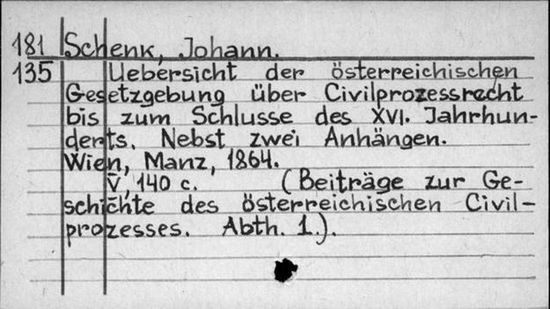 181 Schenk, Johann.
135 Uebersicht der österreichischen
Gesetzgebung über Civilprozessrecht
bis zum Schlusse des XVI. Jahrhun-
derts. Nebst zwei Anhängen.
Wien, Manz, 1864.
V 140 c. (Beiträge zur Ge-
schichte des österreichischen Civil-
prozesses. Abth. 1.).